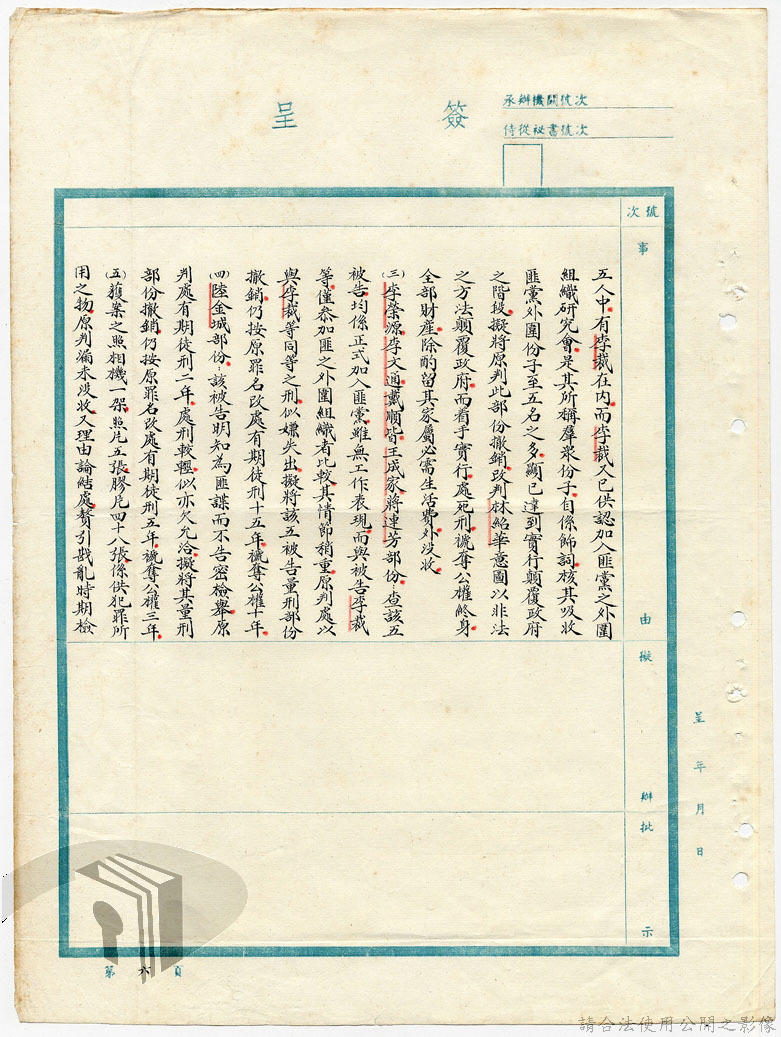 簽呈
承辦機關號次
侍從祕書號次
號次
事由
擬辦
批示
呈 年 月 日
五人中有李裁在內而李裁又已供認加入匪黨之外圍
組織研究會是其所稱羣眾份子自係飾詞核其吸收
匪黨外圍份子至五名之多顯已達到實行顛覆政府
之階段擬將原判此部份撤銷改判林紹華意圖以非法
之方法顛覆政府而着手實行處死刑褫奪公權終身
全部財產除酌留其家屬必需生活費外沒收
㈢李榮源李文通戴順皆王成家蔣連芳部份查該五
被告均係正式加入匪黨雖無工作表現而與被告李裁
等僅參加匪之外圍組織者比較其情節稍重原判處以
與李裁等同等之刑似嫌失出擬將該五被告量刑部份
撤銷仍按原罪名改處有期徒刑十五年褫奪公權十年
㈣陸金城部份：該被告明知為匪諜而不告密檢舉原
判處有期徒刑二年處刑較輕似亦欠允洽擬將其量刑
部份撤銷仍按原罪名改處有期徒刑五年褫奪公權三年
㈤獲案之照相機一架照片五張膠片四十八張係供犯罪所
用之物原判漏未沒收又理由論結處贅引戡亂時期檢
第六頁
請合法使用公開之影像